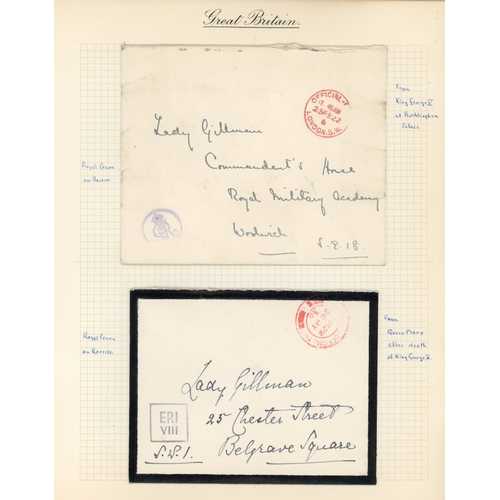 Great Britain.
From
King George V
at Buckingham
Palace
OFFICIAL
LONDON.S.W.
Lady Gillman
Commandant's House
Royal Military Academy
Woolwich
S.E.18.
Royal Crown
on Reverse
Lady Gillman
25 Chester Street
Belgrave Square
S.W.1.
ERI
VIII
Royal Crown
on Reverse
From
Queen Mary
after death
of King George V